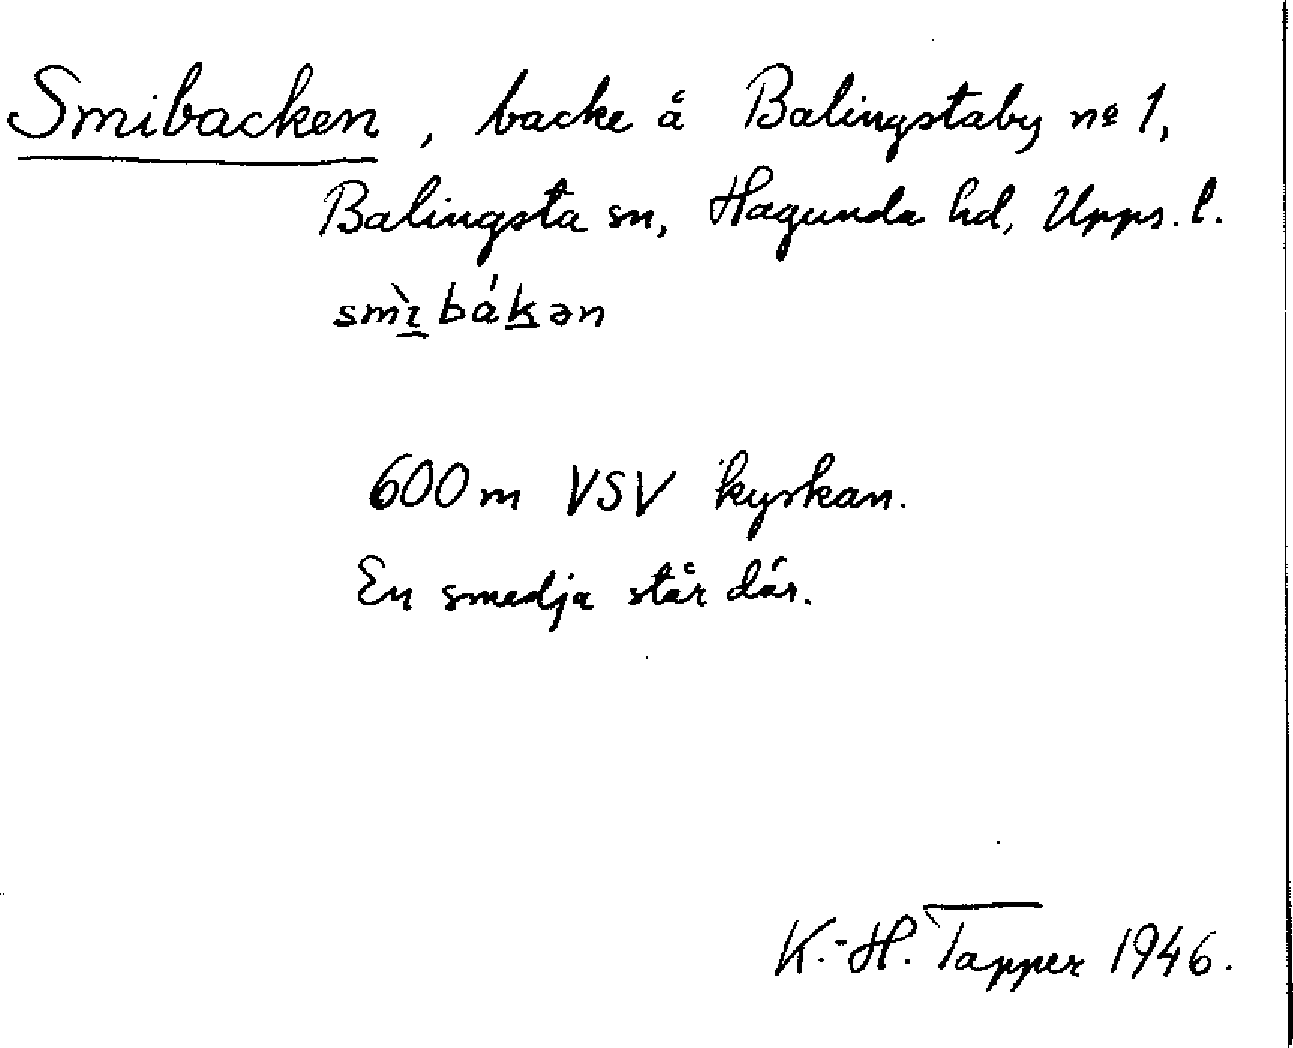 Smibacken, backe å Balingstaby nº 1,
Balingsta sn, Hagunda hd, Upps. l.
smı̀bákən
600 m VSV kyrkan.
En smedja står där.
K.-H. Tapper 1946.